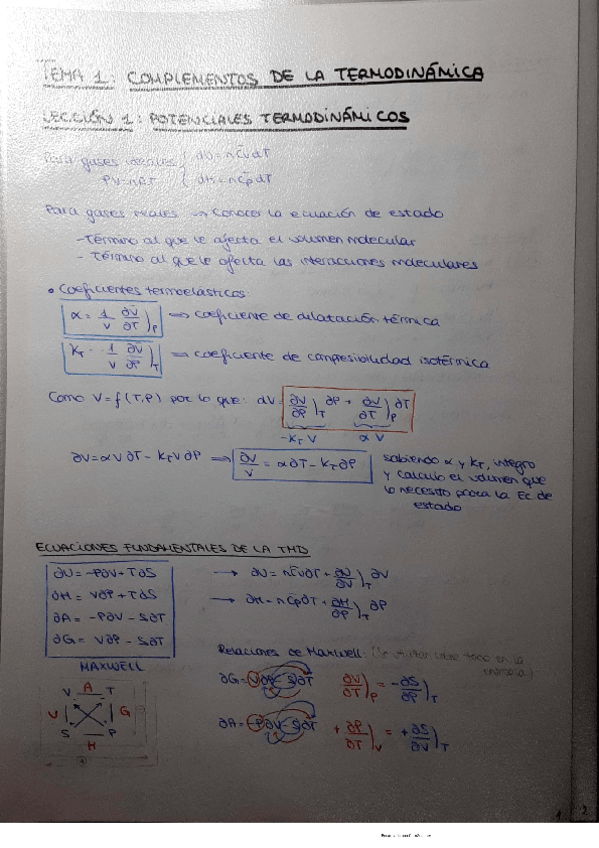 TEMA 1: COMPLEMENTOS DE LA TERMODINÁMICA
LECCIÓN 1: POTENCIALES TERMODINÁMICOS
Para gases ideales { dU = nC̄vdT
PV=nRT { dH = nC̄pdT
Para gases reales → Conocer la ecuación de estado
- Término al que le afecta el volumen molecular
- Término al que le afecta las interacciones moleculares
• Coeficientes termoelásticos
α = 1/V ∂V/∂T)P ⇒ coeficiente de dilatación térmica
KT - 1/V ∂V/∂P)T ⇒ coeficiente de compresibilidad isotérmica
Como V = f(T,P) por lo que: dV = ∂V/∂P)T ∂P + ∂V/∂T)P ∂T
-KT V αV
∂V = αV∂T - KTV∂P ⇒ ∂V/V = α∂T - KT∂P
sabiendo α y KT, integro
y calculo el volumen que
lo necesito para la Ec de
estado
ECUACIONES FUNDAMENTALES DE LA TMD
∂U = -P∂V + T∂S → ∂U = nC̄v∂T + ∂U/∂V)T ∂V
∂H = V∂P + T∂S → ∂H = nC̄p∂T + ∂H/∂P)T ∂P
∂A = -P∂V - S∂T
∂G = V∂P - S∂T
Relaciones de Maxwell:
MAXWELL
V A T
U G
S P
H
∂G = V∂P - S∂T ∂V/∂T)P = -∂S/∂P)T
∂A = -P∂V - S∂T + ∂P/∂T)V = +∂S/∂V)T
1 2